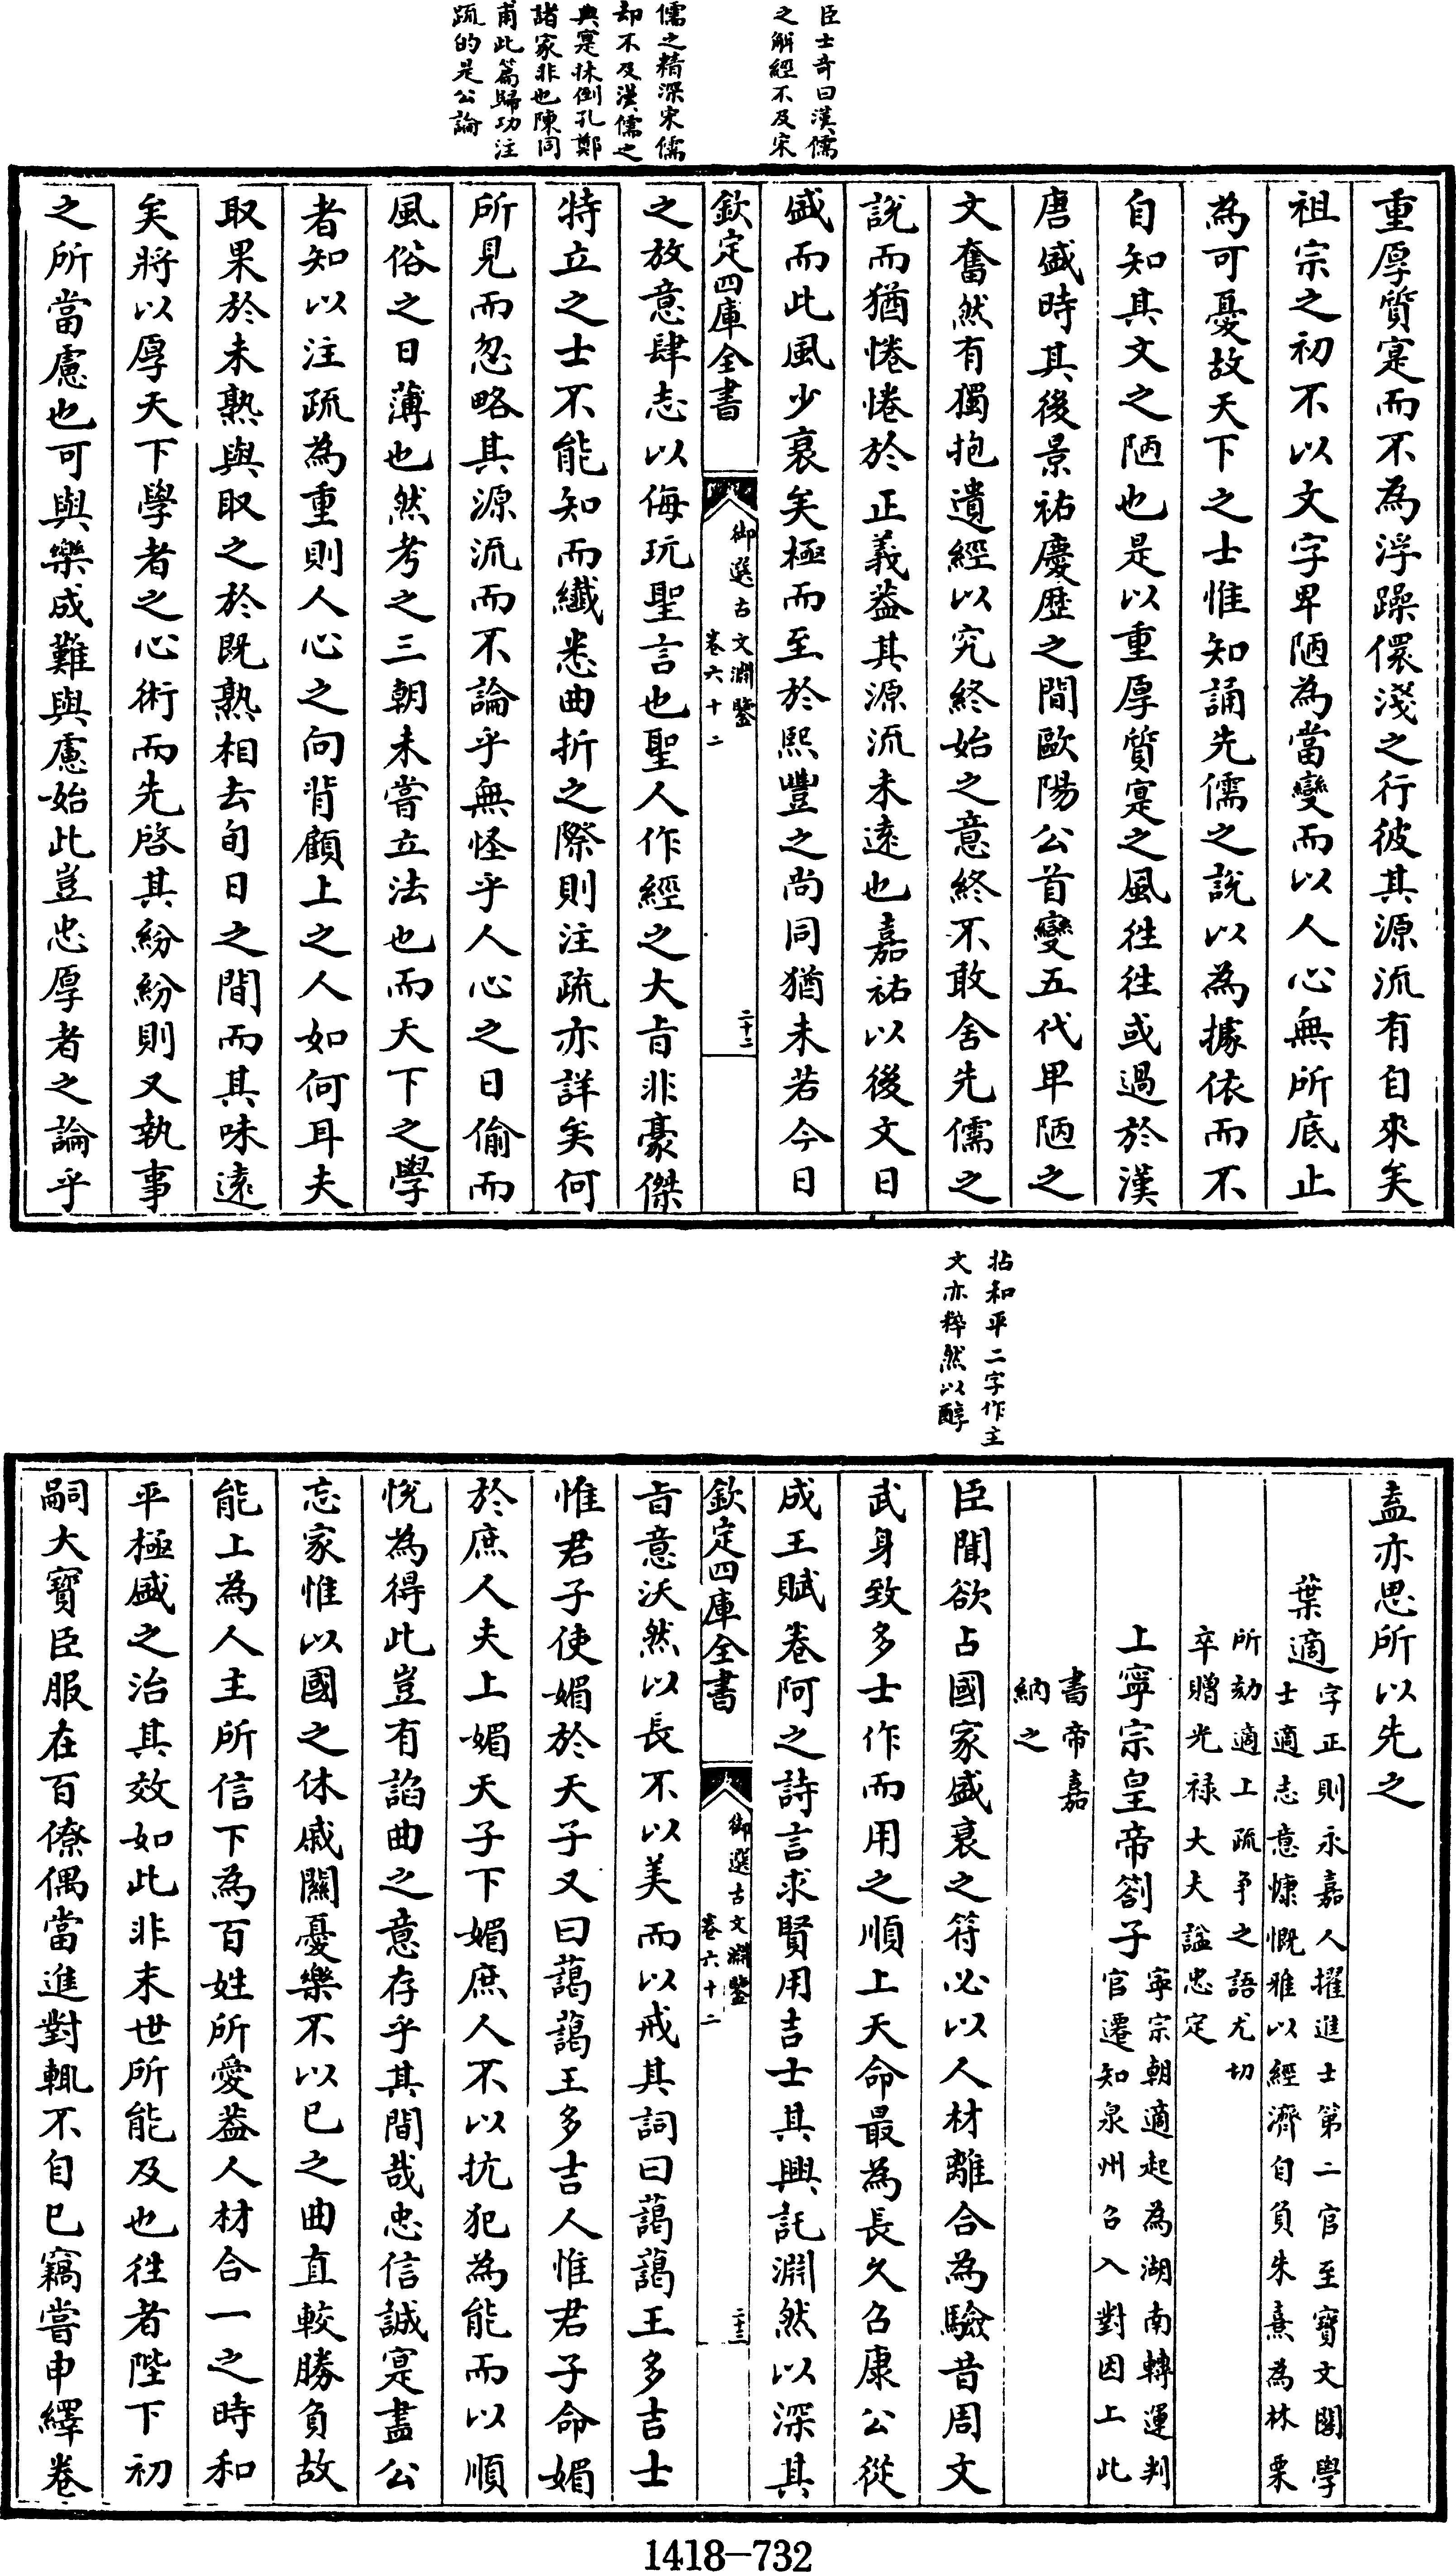 臣士奇曰漢儒
之解經不及宋
儒之精深宋儒
却不及漢儒之
典寔抹倒孔鄭
諸家非也陳同
甫此篇歸功注
疏的是公論
重厚質寔而不為浮躁儇淺之行彼其源流有自來矣
祖宗之初不以文字卑陋為當變而以人心無所底止
為可憂故天下之士惟知誦先儒之說以為據依而不
自知其文之陋也是以重厚質寔之風徃徃或過於漢
唐盛時其後景祐慶歴之間歐陽公首變五代卑陋之
文奮然有獨抱遺經以究終始之意終不敢舍先儒之
說而猶惓惓於正義葢其源流未遠也嘉祐以後文日
盛而此風少衰矣極而至於熙豐之尚同猶未若今日
欽定四庫全書
御選古文淵鑒
卷六十二
二十二
之放意肆志以侮玩聖言也聖人作經之大㫖非豪傑
特立之士不能知而纎悉曲折之際則注疏亦詳矣何
所見而忽略其源流而不論乎無怪乎人心之日偷而
風俗之日薄也然考之三朝未嘗立法也而天下之學
者知以注疏為重則人心之向背顧上之人如何耳夫
取果於未熟與取之於既熟相去旬日之間而其味遠
矣將以厚天下學者之心術而先啓其紛紛則又執事
之所當慮也可與樂成難與慮始此豈忠厚者之論乎
拈和平二字作主
文亦粹然以醇
盍亦思所以先之
葉適字正則永嘉人擢進士第二官至寳文閣學
士適志意慷慨雅以經濟自負朱熹為林栗
所劾適上疏争之語尤切
卒贈光禄大夫諡忠定
上寜宗皇帝劄子寜宗朝適起為湖南轉運判
官遷知泉州召入對因上此
書帝嘉
納之
臣聞欲占國家盛衰之符必以人材離合為驗昔周文
武身致多士作而用之順上天命最為長久召康公從
成王賦卷阿之詩言求賢用吉士其興託淵然以深其
欽定四庫全書
御選古文淵鑒
卷六十二
二十三
㫖意沃然以長不以美而以戒其詞曰藹藹王多吉士
惟君子使媚於天子又曰藹藹王多吉人惟君子命媚
於庶人夫上媚天子下媚庶人不以抗犯為能而以順
悅為得此豈有諂曲之意存乎其間哉忠信誠寔盡公
忘家惟以國之休戚關憂樂不以已之曲直較勝負故
能上為人主所信下為百姓所愛葢人材合一之時和
平極盛之治其效如此非末世所能及也徃者陛下初
嗣大寶臣服在百僚偶當進對輒不自已竊嘗申繹卷
1418—732